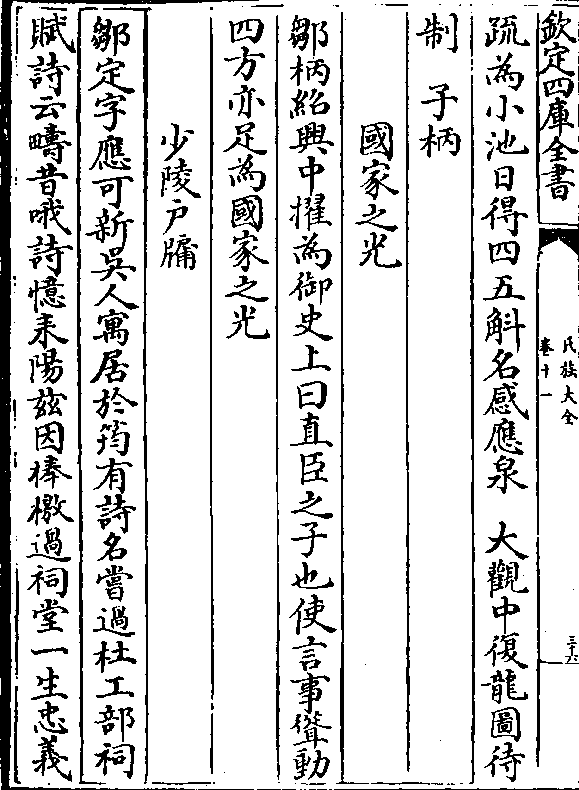 欽定四庫全書
氏族大全
卷十一
三十六
疏為小池日得四五斛名感應泉　大觀中復龍圖待
制　子柄
國家之光
鄒柄紹興中擢為御史上曰直臣之子也使言事聳動
四方亦足為國家之光
少陵户牖
鄒定字應可新吳人寓居於筠有詩名嘗過杜工部祠
賦詩云疇昔哦詩憶耒陽兹因捧檄過祠堂一生忠義